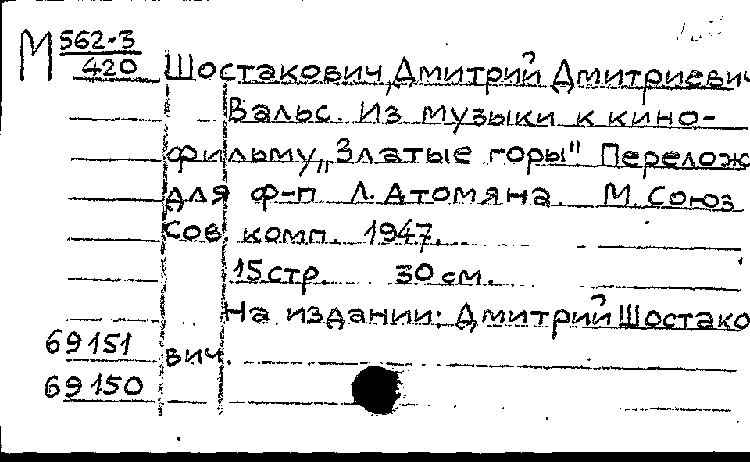 М 562-3
420 Шостакович, Дмитрий Дмитриевич
Вальс. Из музыки к кино-
фильму „Златые горы" Перелож
для ф-п Л. Атомяна. М. Союз
Сов. комп. 1947.
15 стр. 30 см.
На издании: Дмитрий Шостако
69151 вич.
69150